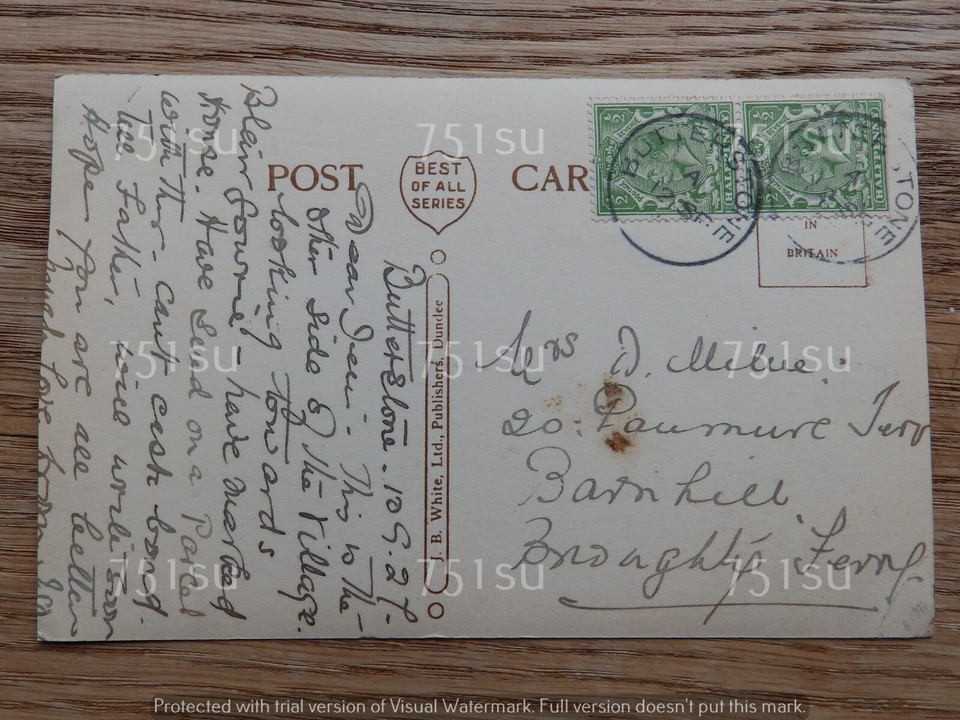 POST CAR
BEST
OF ALL
SERIES
BUTTERSTONE
TONE
IN
BRITAIN
J. B. White, Ltd., Publishers, Dundee
Mrs D. Milne.
20. Panmure Terr
Barnhill
Broughty Ferry
Butterstone. 10.9.
Dear Jeen. This is the
other side of the Village.
looking Towards
Blair Gowrie - have marked
House. Have send on a Parcel
with this - cant cash bond.
Tell Father, will write soon
Hope you are all better
much love from
751su 751su 751su
751su 751su 751su
751su 751su 751su
Protected with trial version of Visual Watermark. Full version doesn't put this mark.